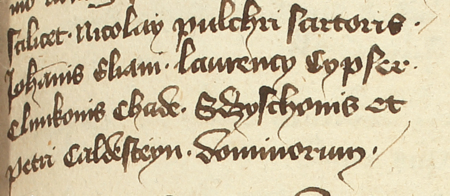 scilicet · Nicolay pulchri sartoris ·
Johannis Eliam · laurency Cypser ·
Clmkonis Chade · Swyschonis et
Petri Caldesteyn · dominorum ·